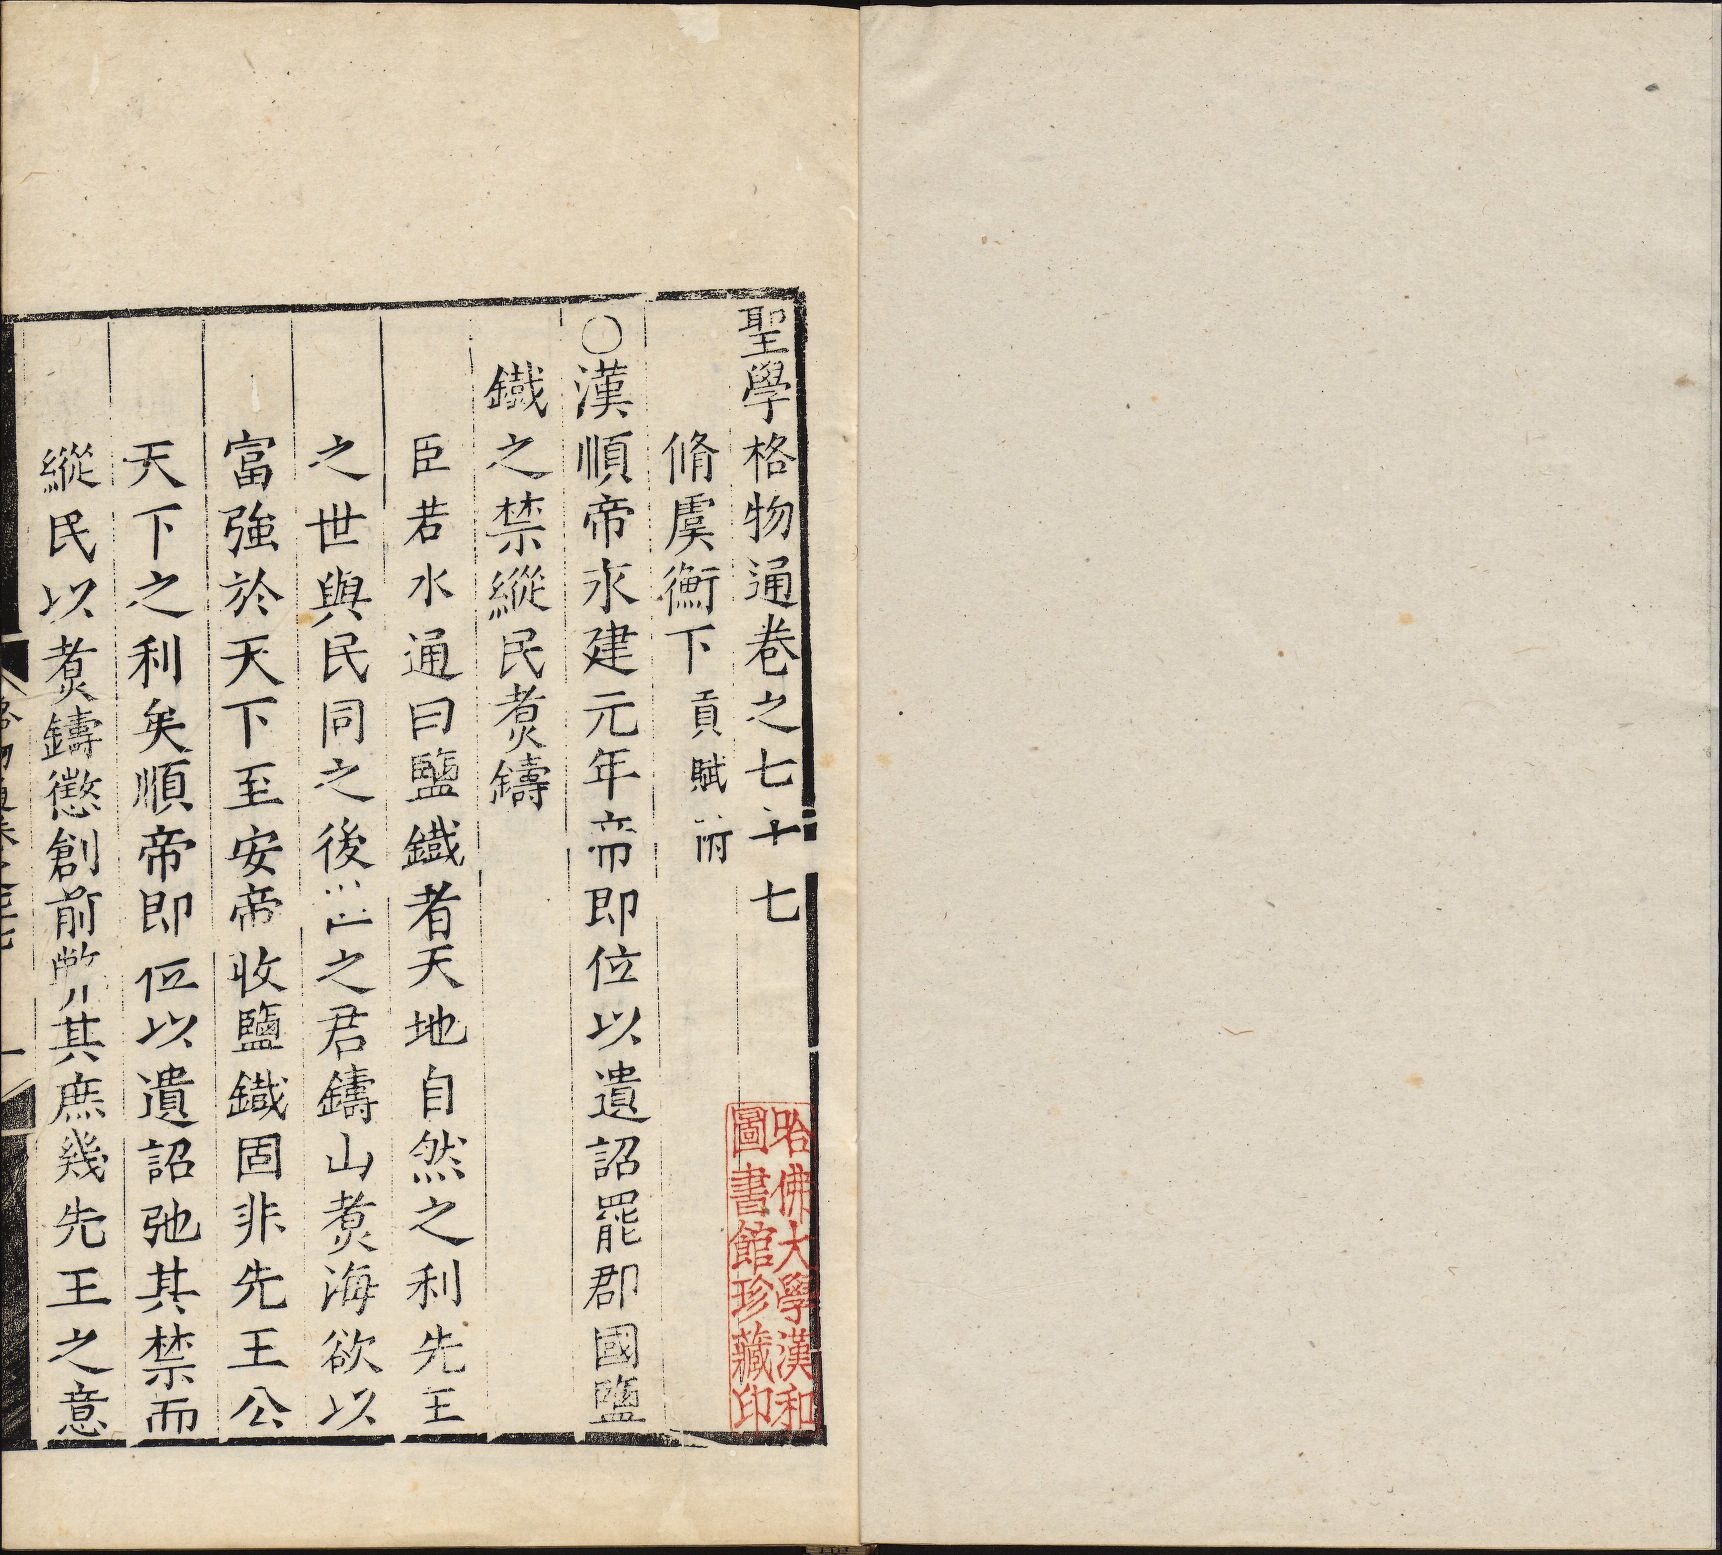 聖學格物通卷之七十七
脩虞衡下貢賦附
○漢順帝永建元年帝即位以遺詔罷郡國鹽
鐵之禁縱民煑鑄
臣若水通曰鹽鐵者天地自然之利先王
之世與民同之後世之君鑄山煑海欲以
富強於天下至安帝收鹽鐵固非先王公
天下之利矣順帝即位以遺詔弛其禁而
縱民以煑鑄懲創前弊其庶幾先王之意
格物通卷之七十七
一
哈佛大學漢和
圖書館珍藏印